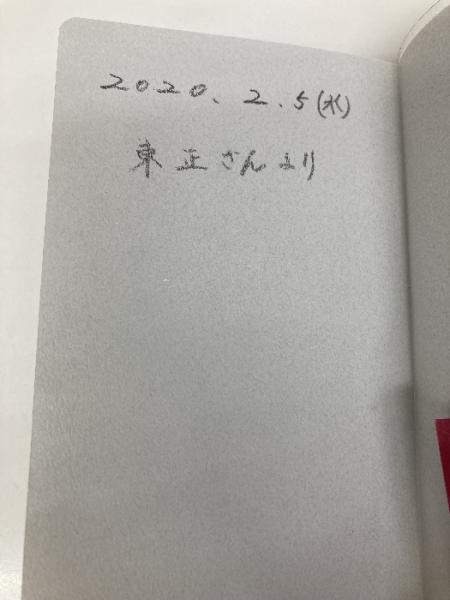 2020.2.5(水)
東 正さんより